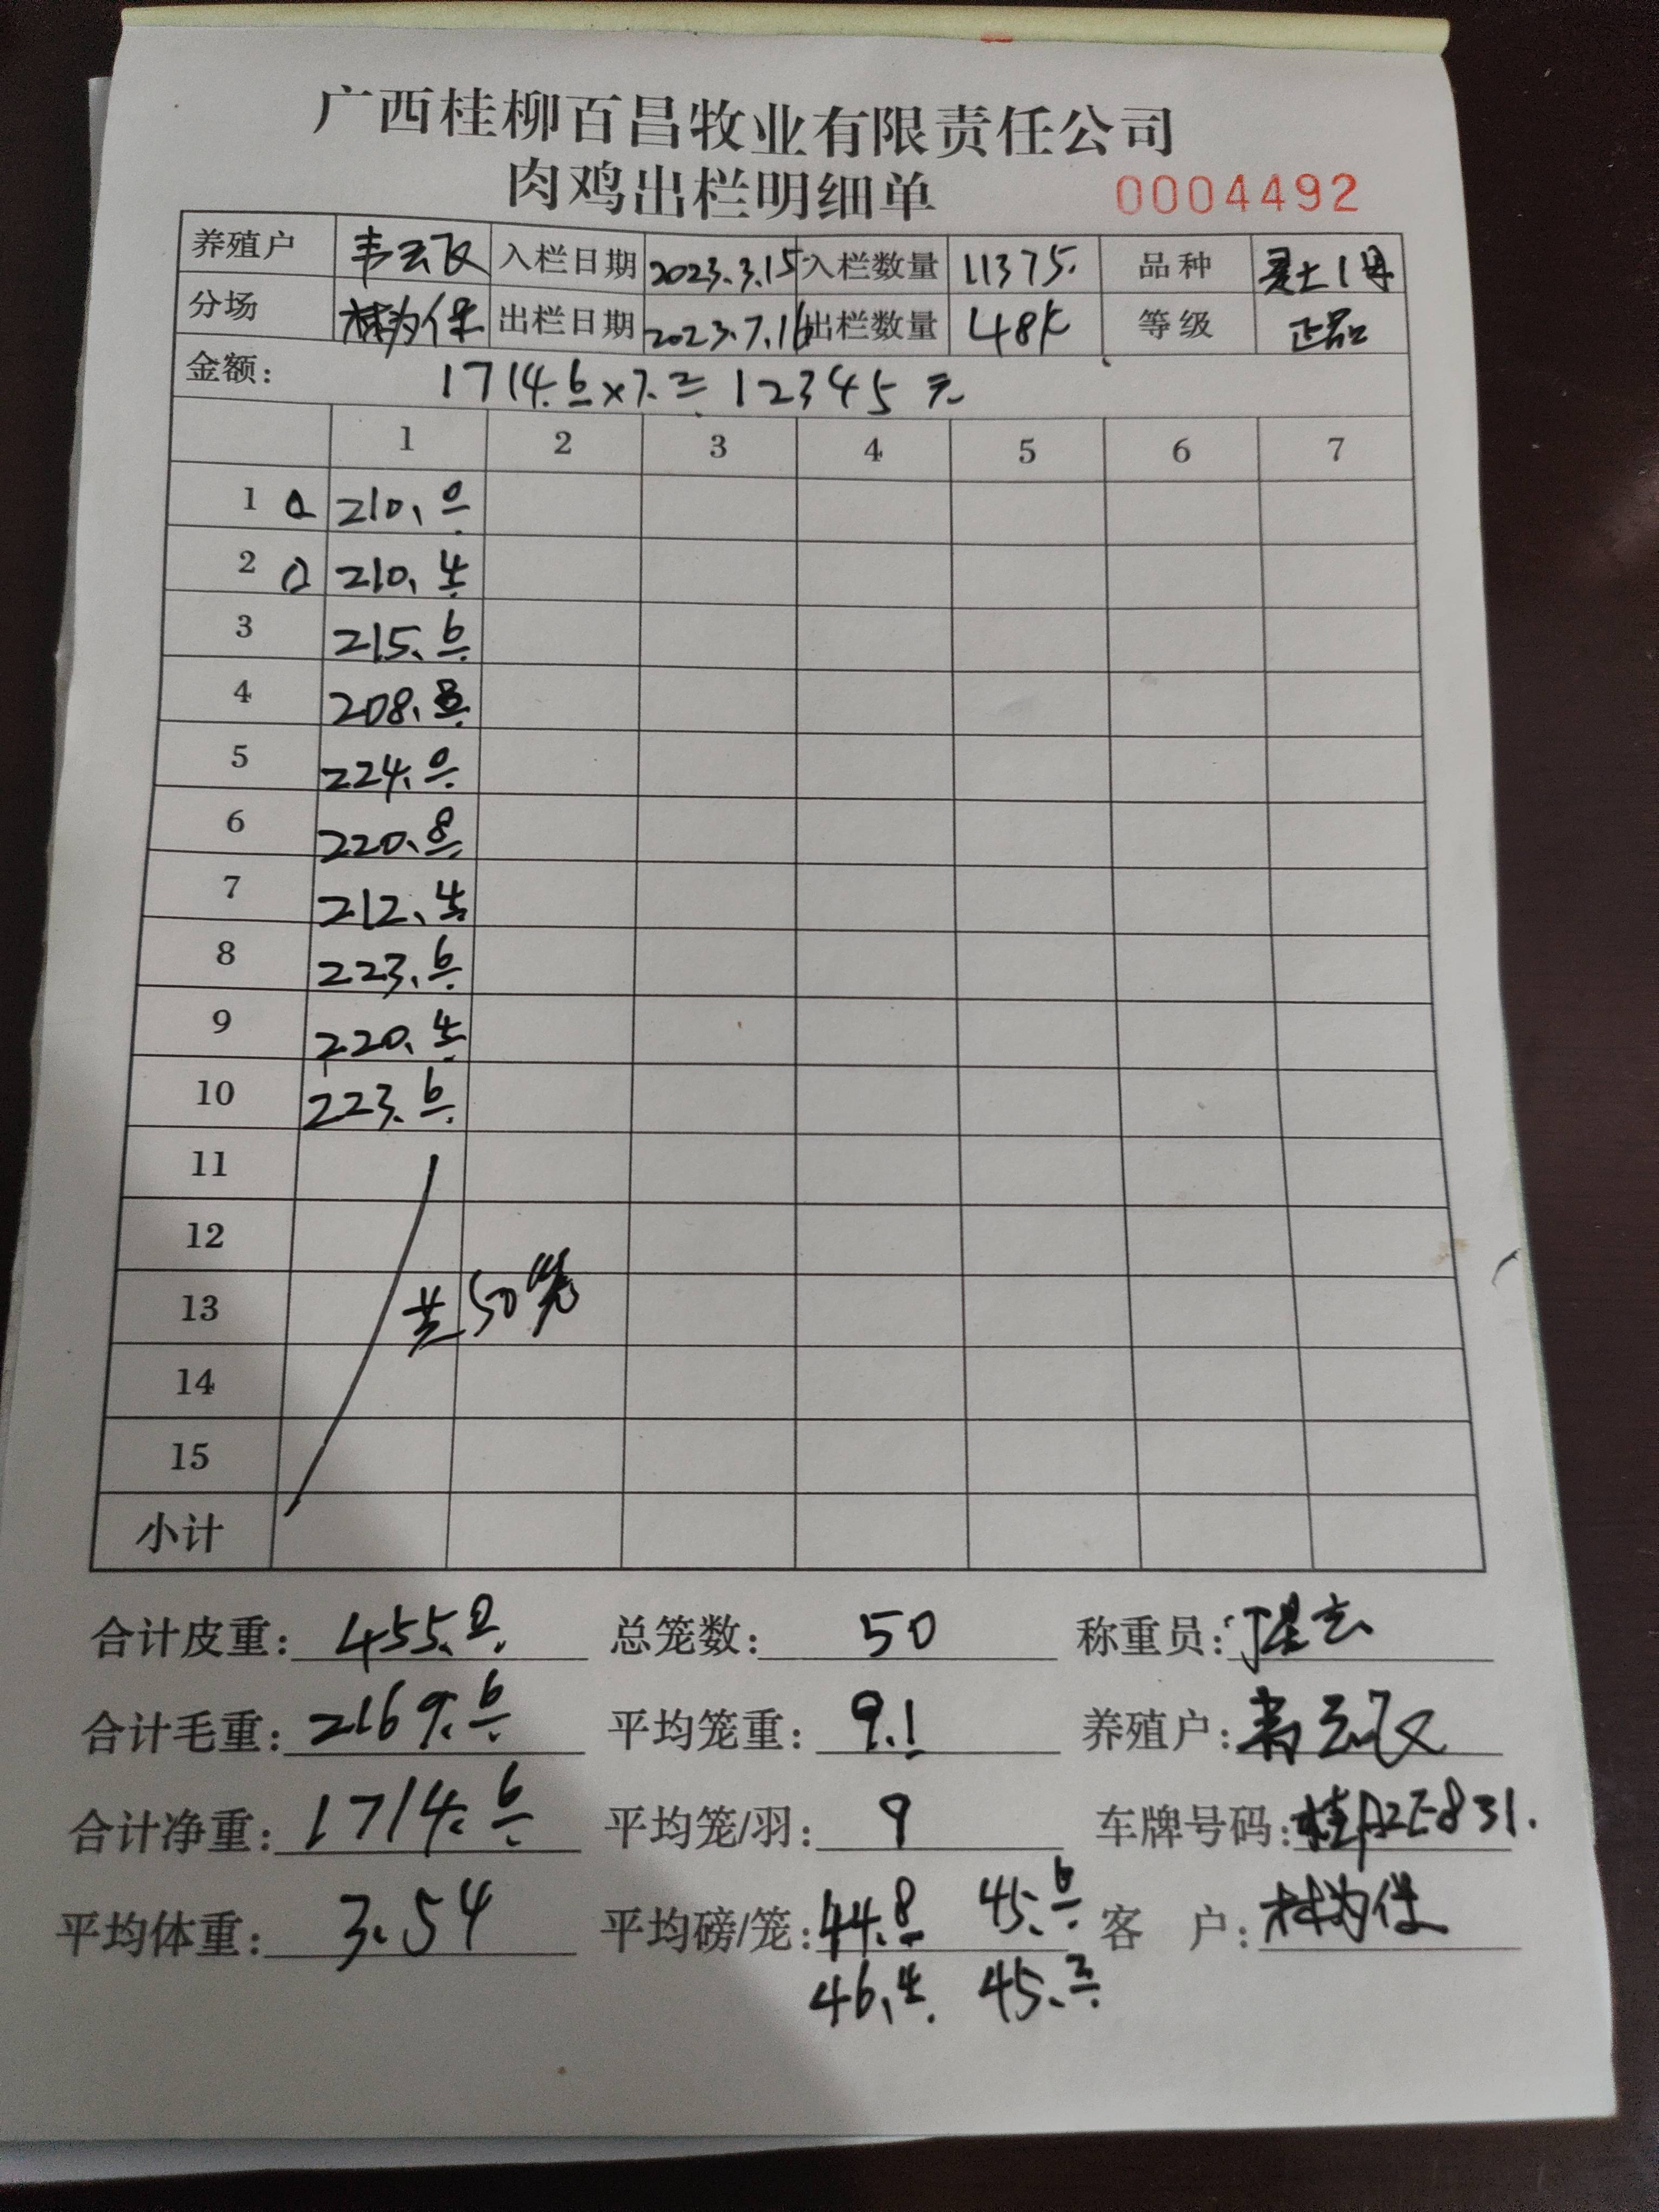 广西桂柳百昌牧业有限责任公司
肉鸡出栏明细单 0004492
养殖户 韦云飞 入栏日期 2023.3.15 入栏数量 11375. 品种 灵土1母
分场 林为保 出栏日期 2023.7.16 出栏数量 48 等级 正品
金额: 1714.6×7.2=12345元
1 2 3 4 5 6 7
1 210.0
2 210.4
3 215.6
4 208.8
5 224.0
6 220.8
7 212.4
8 223.6
9 220.4
10 223.6
11
12
13 共50笼
14
15
小计
合计皮重: 455.0 总笼数: 50 称重员:
合计毛重: 2169.6 平均笼重: 9.1 养殖户: 韦云飞
合计净重: 1714.6 平均笼/羽: 9 车牌号码: 桂A2E831.
平均体重: 3.54 平均磅/笼: 44.8 45.6 客 户: 林为保
46.4 45.2